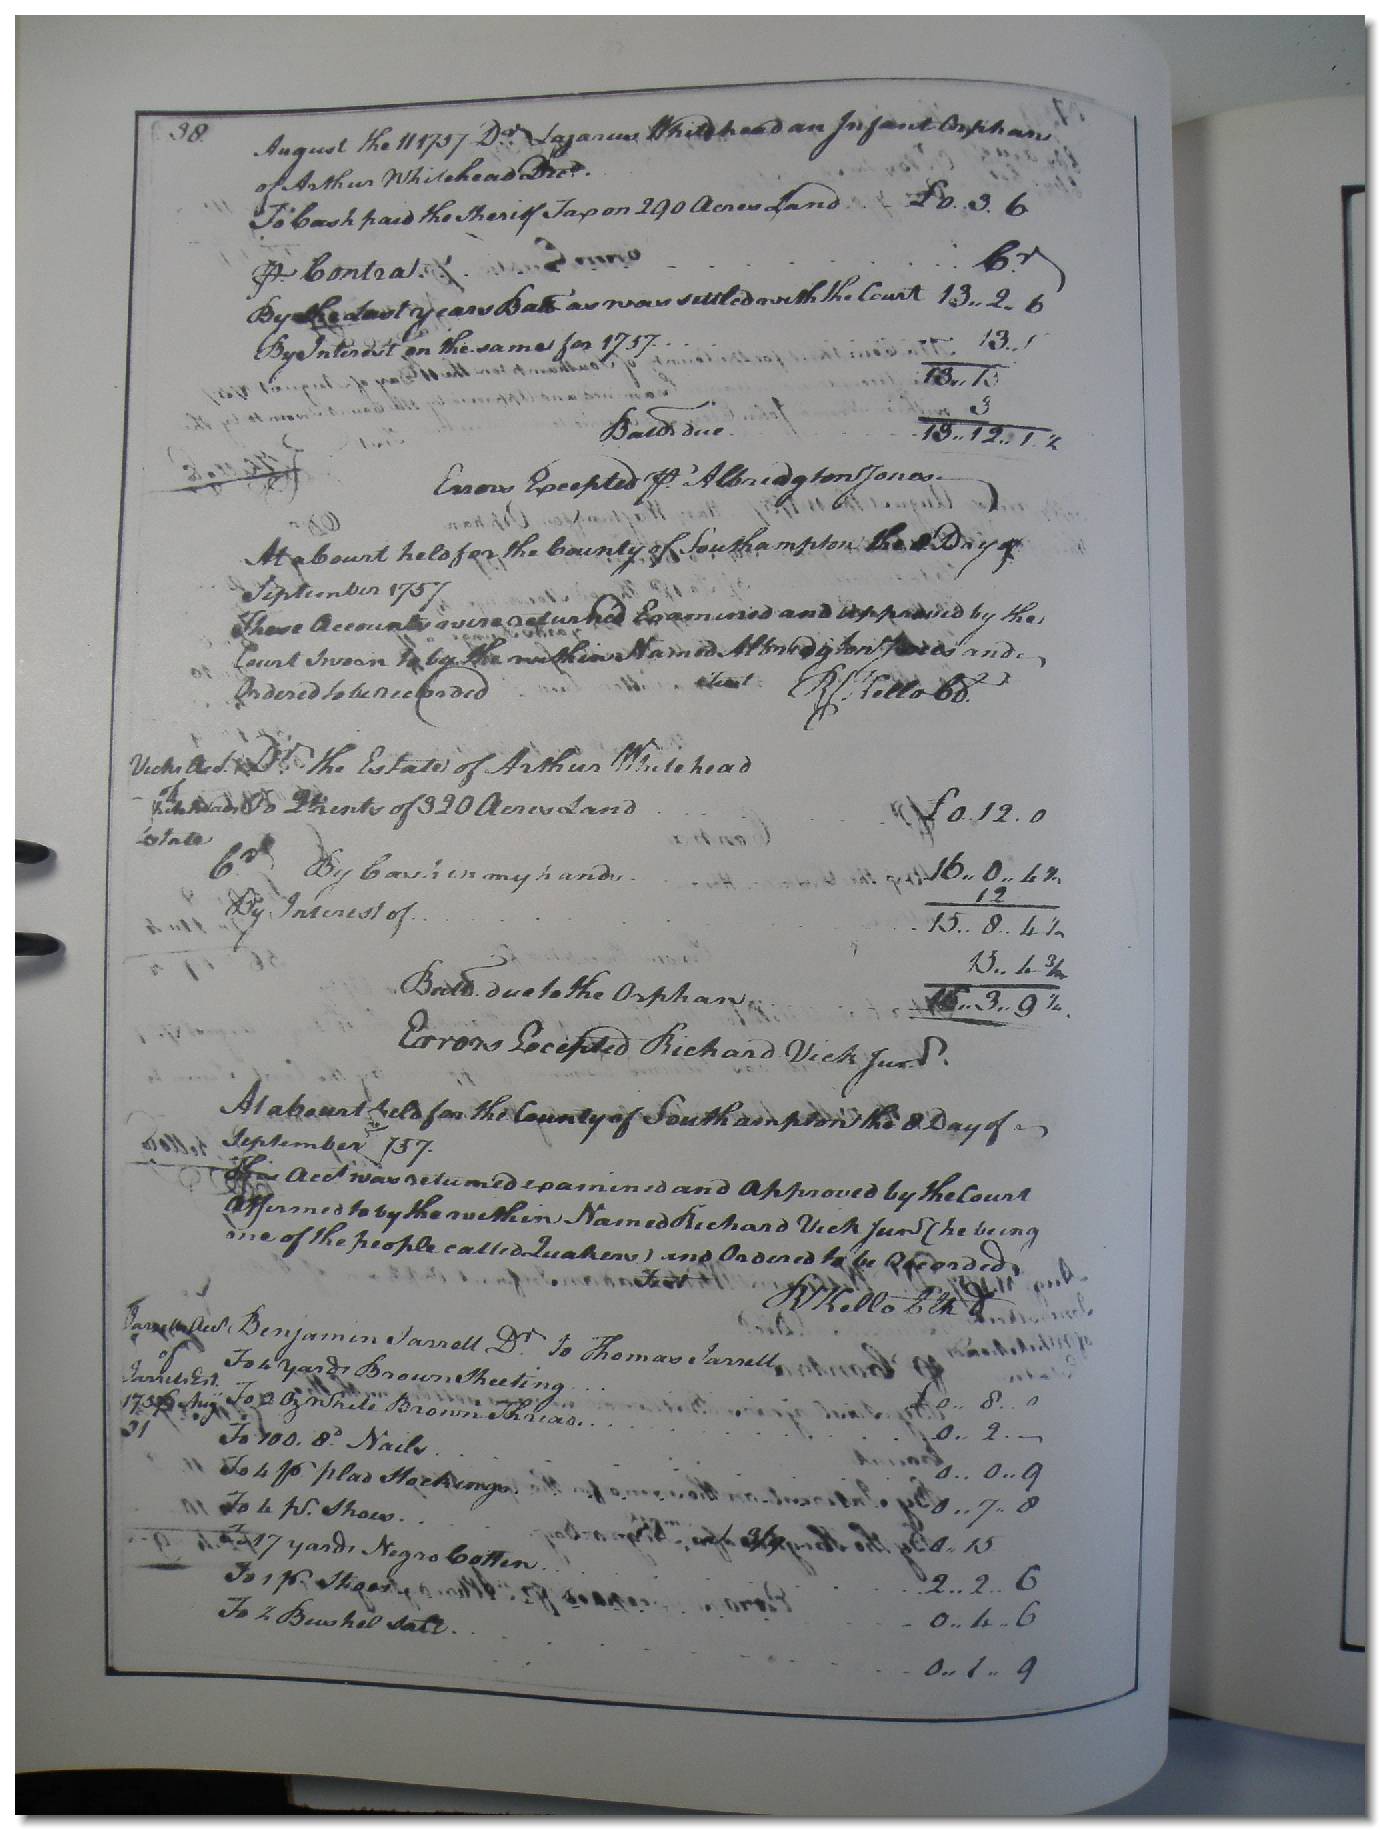 38.
August the 11 1757 Dr. Lazarus Whitehead an Infant Orphan
of Arthur Whitehead Decd.
To Cash paid the Sheriff Tax on 290 Acres Land £0. 3. 6
Pr. Contra Cr
By the Last years Balla as was settled with the Court 13.. 2.. 6
By Interest on the same for 1757 13.. 1
13.. 15
3
Balla due 13.. 12.. 1 ½
Errors Excepted Pr. Albridgton Jones
At a Court held for the County of Southampton the 8 Day of
September 1757
These Accounts were returned Examined and approved by the
Court Sworn to by the within Named Albridgton Jones and
Ordered to be recorded Test R Kello Cd.
Vicks Acct. Dr. the Estate of Arthur Whitehead
of
Whiteheads To Qtrents of 320 Acres Land £0. 12. 0
Estate
Cr By Cash in my hands 16.. 0.. 4½
12
By Interest of 15.. 8.. 4½
15.. 4¾
Balla. due to the Orphan 16.. 3.. 9¼
Errors Excepted Richard Vick Junr.
At a Court held for the County of Southampton the 8 Day of
September 1757.
This Acct was returned examined and Approved by the Court
Affirmed to by the within Named Richard Vick Junr (he being
one of the people called Quakers) and Ordered to be Recorded
Test
R Kello Clk
Jarrells Acct. Benjamin Jarrell Dr. To Thomas Jarrell
of
To 4 yards Brown Sheeting £0.. 8.. 0
Jarrels Est.
1756 Augt To 2 Oz White Brown Thread 0.. 2.. —
31
To 100. 8d Nails 0.. 0.. 9
To 4 pr plad Stockings 0.. 7.. 8
To 4 pr. Shoes 0.. 15
To 17 yards Negro Cotten 2.. 2.. 6
To 1 pr. 0.. 4.. 6
To ½ Bushel Salt 0.. 1.. 9